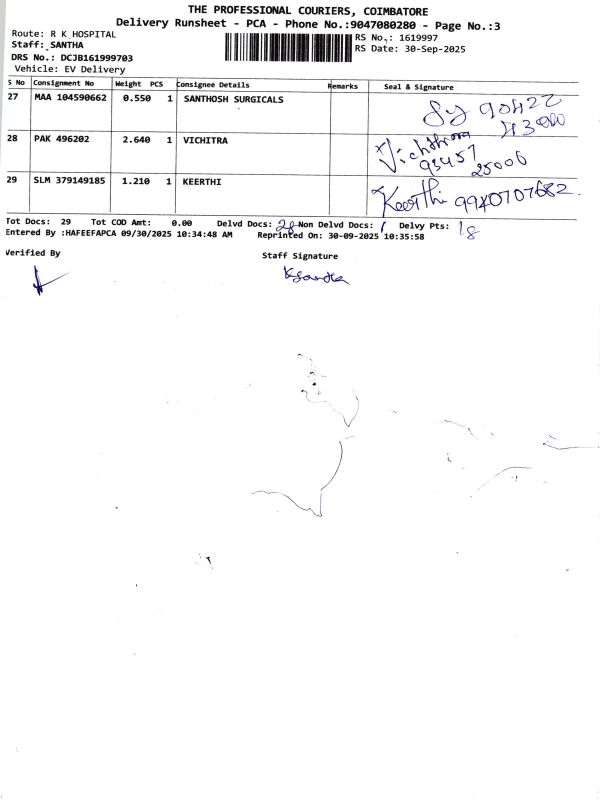 THE PROFESSIONAL COURIERS, COIMBATORE
Delivery Runsheet - PCA - Phone No.:9047080280 - Page No.:3
Route: R K HOSPITAL
RS No.: 1619997
Staff: SANTHA
RS Date: 30-Sep-2025
DRS No.: DCJB161999703
Vehicle: EV Delivery
S No Consignment No Weight PCS Consignee Details Remarks Seal & Signature
27 MAA 104590662 0.550 1 SANTHOSH SURGICALS
28 PAK 496202 2.640 1 VICHITRA Vichithra 93457 25006
29 SLM 379149185 1.210 1 KEERTHI Keerthi 9940707682
Tot Docs: 29 Tot COD Amt: 0.00 Delvd Docs: 28 Non Delvd Docs: 1 Delvy Pts: 18
Entered By :HAFEEFAPCA 09/30/2025 10:34:48 AM Reprinted On: 30-09-2025 10:35:58
Verified By
Staff Signature
KSantha